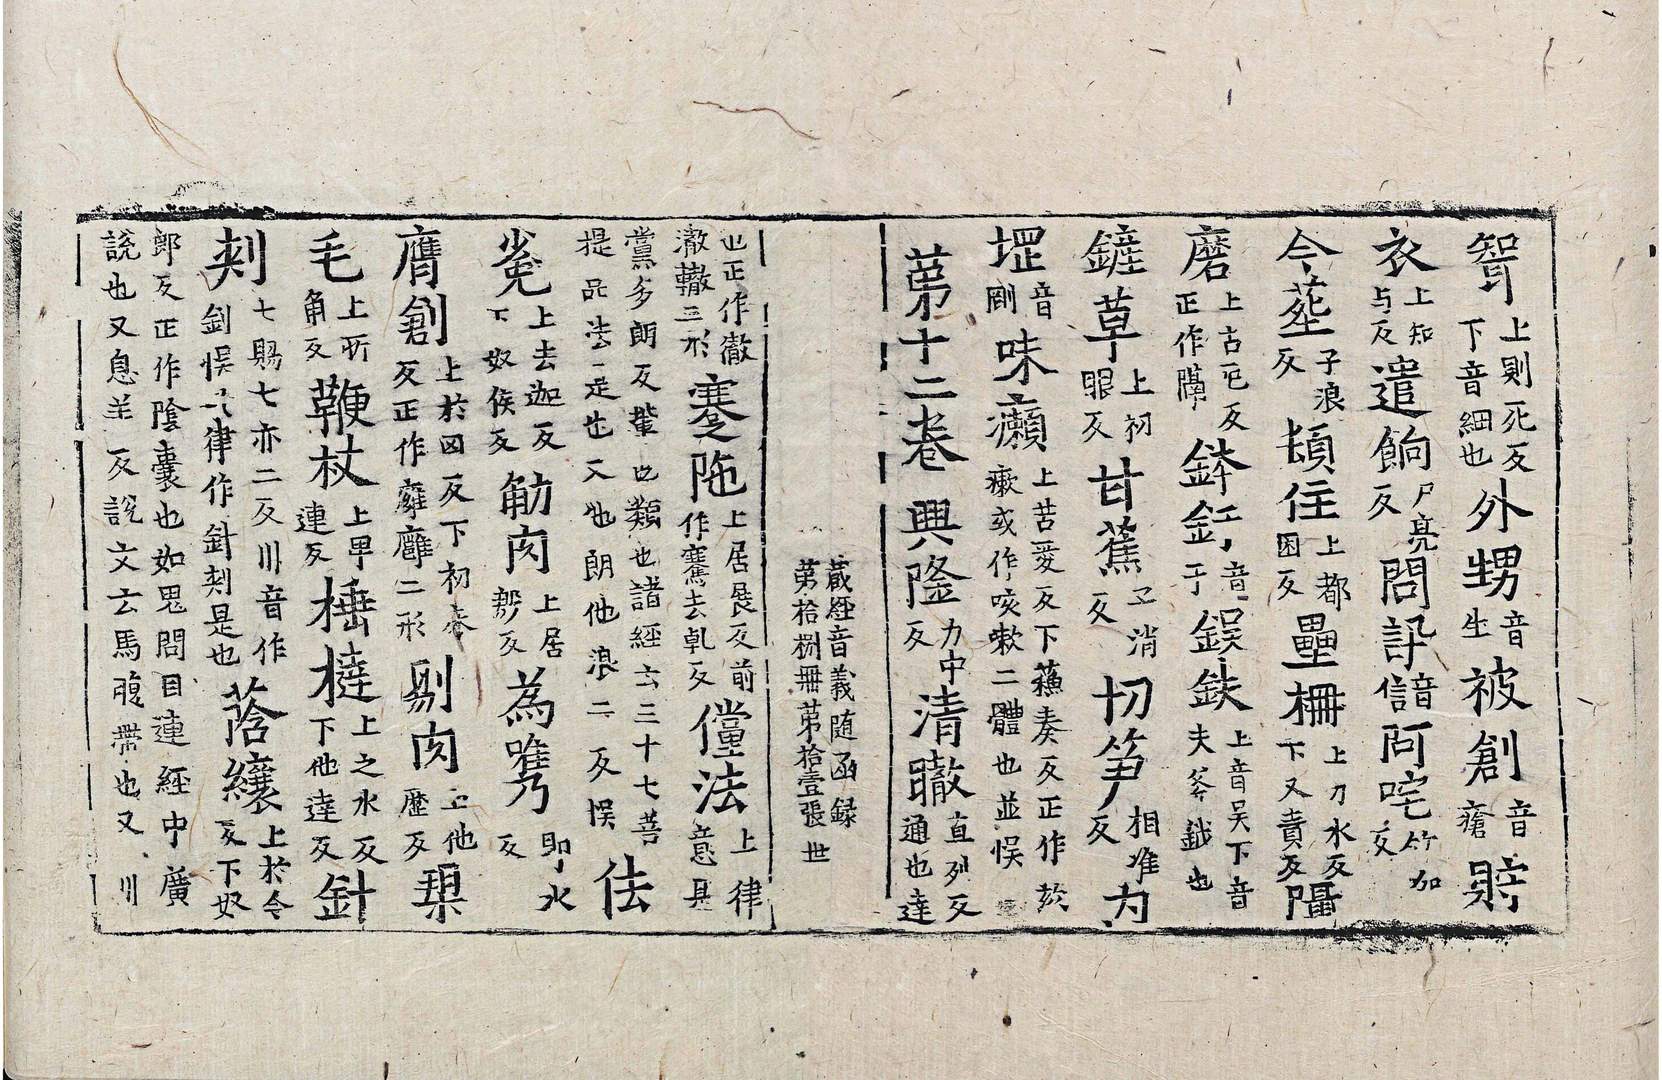 聟上則死反下音細也外甥音生被創音瘡貯
衣上知与反遣餉尸亮反問訃音信阿咤竹加反
令塟子浪反頓住上都困反壘柵上力水反下又責反隱
磨上古皃反正作䕞鉢釪音于鋘鈇上音吴下音夫斧鉞也
鏟草上初眼反甘蕉子消反切笋相准反为
堽音剛味癩上苦爱反下蘓奏反正作欬瘷或作咳嗽二體也並悮
第十二卷興隆力中反清瞮直列反通也達
藏經音義随函録第拾捌冊第拾壹張世
也正作徹澈轍三形蹇陁上居展反前作騫去乹反儻法上律意是
黨多朗反輩也類也諸經云三十七菩提品法是也又他朗他浪二反悮佉
㲋上去迦反下奴侯反觔肉上居勤反為嘴即水反
膺創上於凶反下初春反正作癕廱二形剔肉上他歷反㮚
毛上所角反鞭杖上卑連反棰撻上之水反下他達反針
刾七賜七亦二反川音作釗悮又律作針刾是也蔭纕上於令反下奴
郎反正作陰囊也如思問目連經中廣說也又息羊反說文云馬腹帶也又川